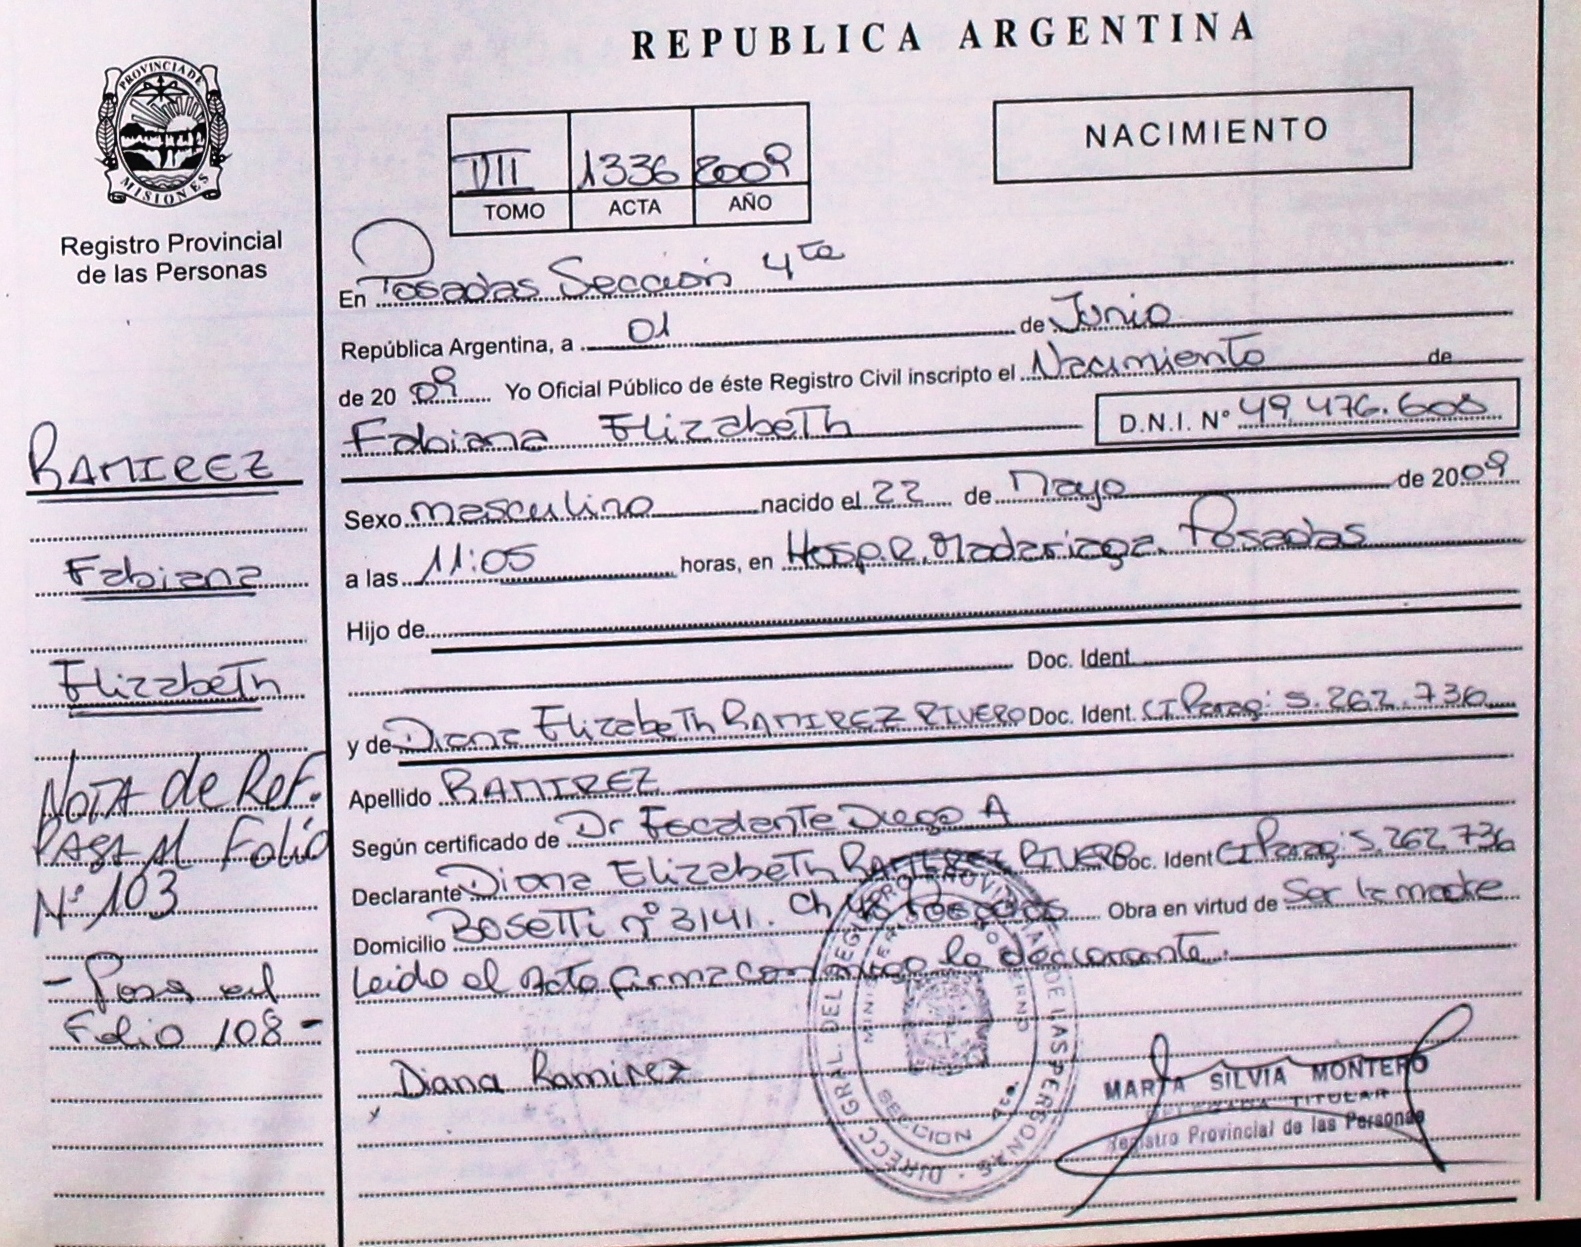 REPUBLICA ARGENTINA
PROVINCIA DE
MISIONES
Registro Provincial
de las Personas
VII 1336 2009
TOMO ACTA AÑO
NACIMIENTO
En Posadas Sección 4ta
República Argentina, a 01 de Junio
de 2009 Yo Oficial Público de éste Registro Civil inscripto el Nacimiento de
Fabiana Elizabeth D.N.I. Nº 49.476.608
Sexo masculino nacido el 22 de Mayo de 2009
a las 11:05 horas, en Hosp. R. Madariaga. Posadas
Hijo de
Doc. Ident.
y de Diana Elizabeth RAMIREZ RIVERO Doc. Ident. CI Parag: 5.262.736
Apellido RAMIREZ
Según certificado de Dr Escalante Diego A
Declarante Diana Elizabeth RAMIREZ RIVERO Doc. Ident CI Parag: 5.262.736
Domicilio Bosetti nº 3141. Ch 48 Posadas Obra en virtud de Ser la madre
Leido el Acta firma conmigo la declarante.
Diana Ramirez
MARIA SILVIA MONTERO
DELEGADA TITULAR
Registro Provincial de las Personas
DIRECC GRAL. DEL REGISTRO PROVINCIAL DE LAS PERSONAS
MINISTERIO DE GOBIERNO
SECCION 4ta.
RAMIREZ
Fabiana
Elizabeth
NOTA de Ref.
PASA Al Folio
Nº 103
- Pasa al
Folio 108 -